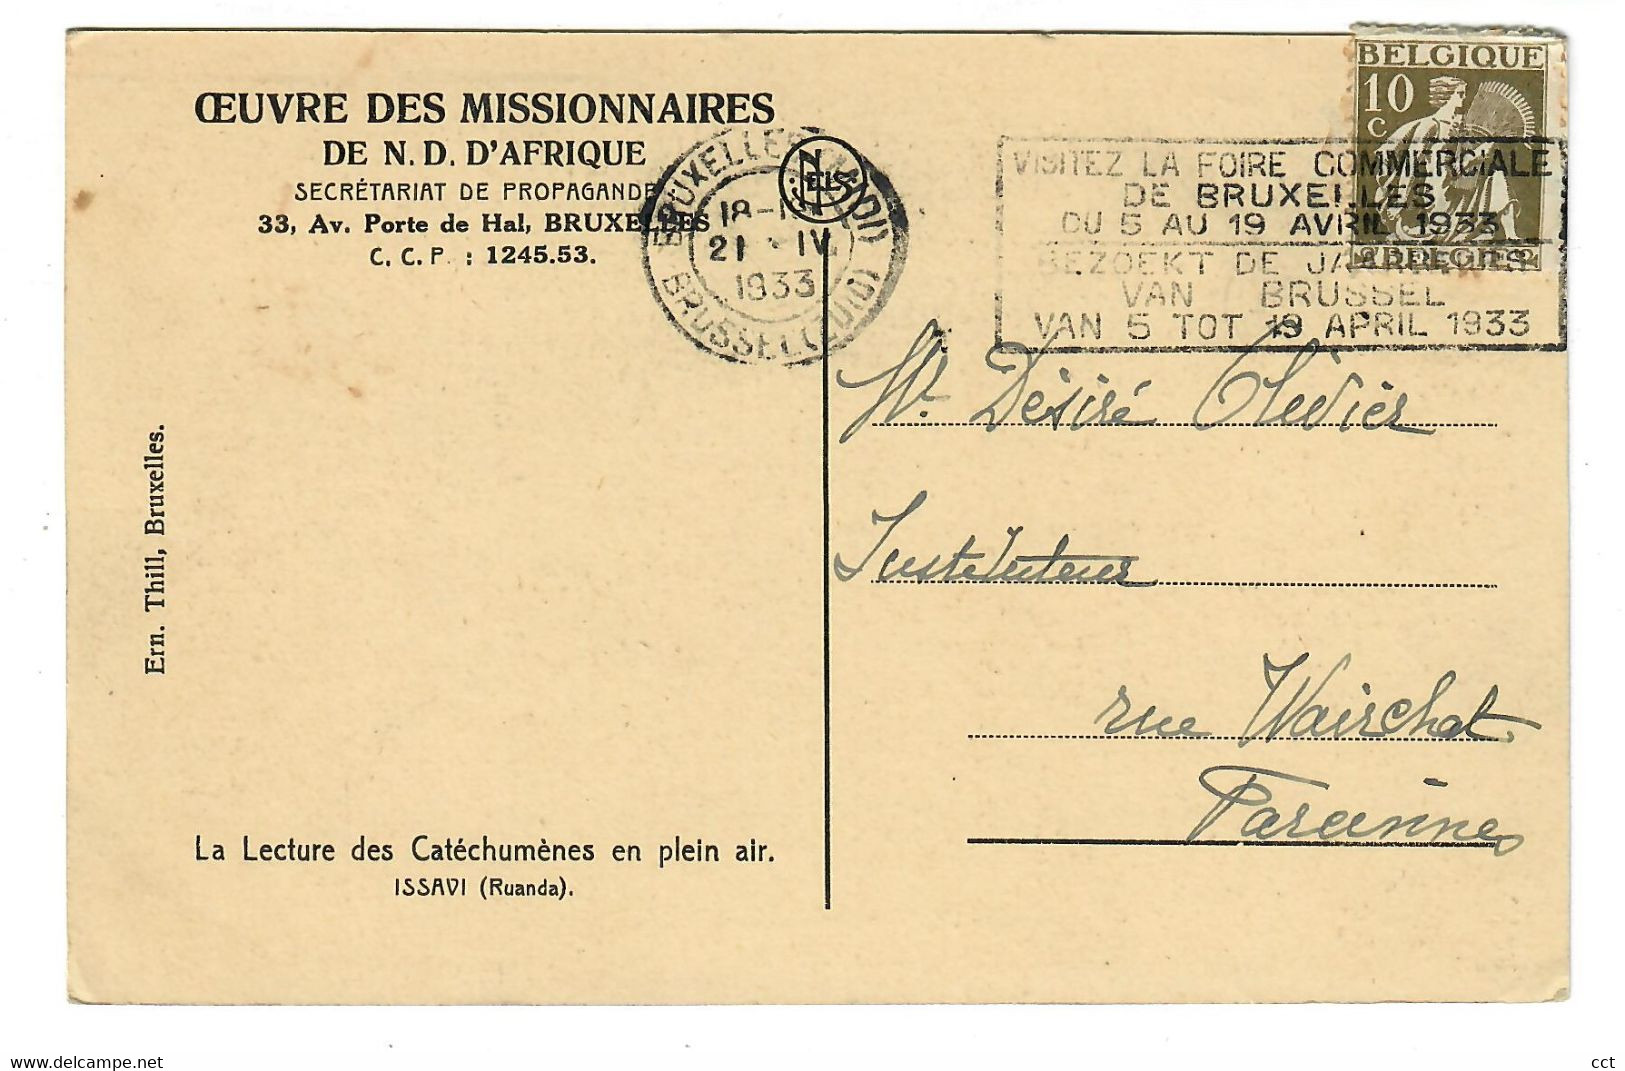 ŒUVRE DES MISSIONNAIRES
DE N. D. D'AFRIQUE
SECRÉTARIAT DE PROPAGANDE
33, Av. Porte de Hal, BRUXELLES
C. C. P. : 1245.53.
BRUXELLES (MIDI)
18-19
21 - IV
1933
BRUSSEL (ZUID)
NELS
BELGIQUE
10
C
BELGIË
VISITEZ LA FOIRE COMMERCIALE
DE BRUXELLES
DU 5 AU 19 AVRIL 1933
BEZOEKT DE JAARBEURS
VAN BRUSSEL
VAN 5 TOT 19 APRIL 1933
Mr. Désiré Olivier
Instituteur
rue Wairchat
Farciennes
Ern. Thill, Bruxelles.
La Lecture des Catéchumènes en plein air.
ISSAVI (Ruanda).
Delcampe.net
cct